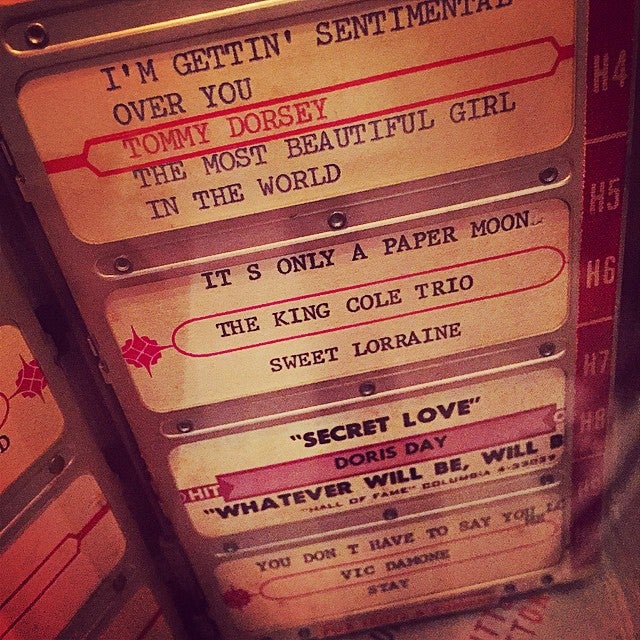 I'M GETTIN' SENTIMENTAL
OVER YOU
TOMMY DORSEY
THE MOST BEAUTIFUL GIRL
IN THE WORLD
H4
H5
IT S ONLY A PAPER MOON
THE KING COLE TRIO
SWEET LORRAINE
H6
H7
"SECRET LOVE"
DORIS DAY
HIT
"WHATEVER WILL BE, WILL B
"HALL OF FAME" COLUMBIA
H8
YOU DON T HAVE TO SAY YOU
VIC DAMONE
STAY
D